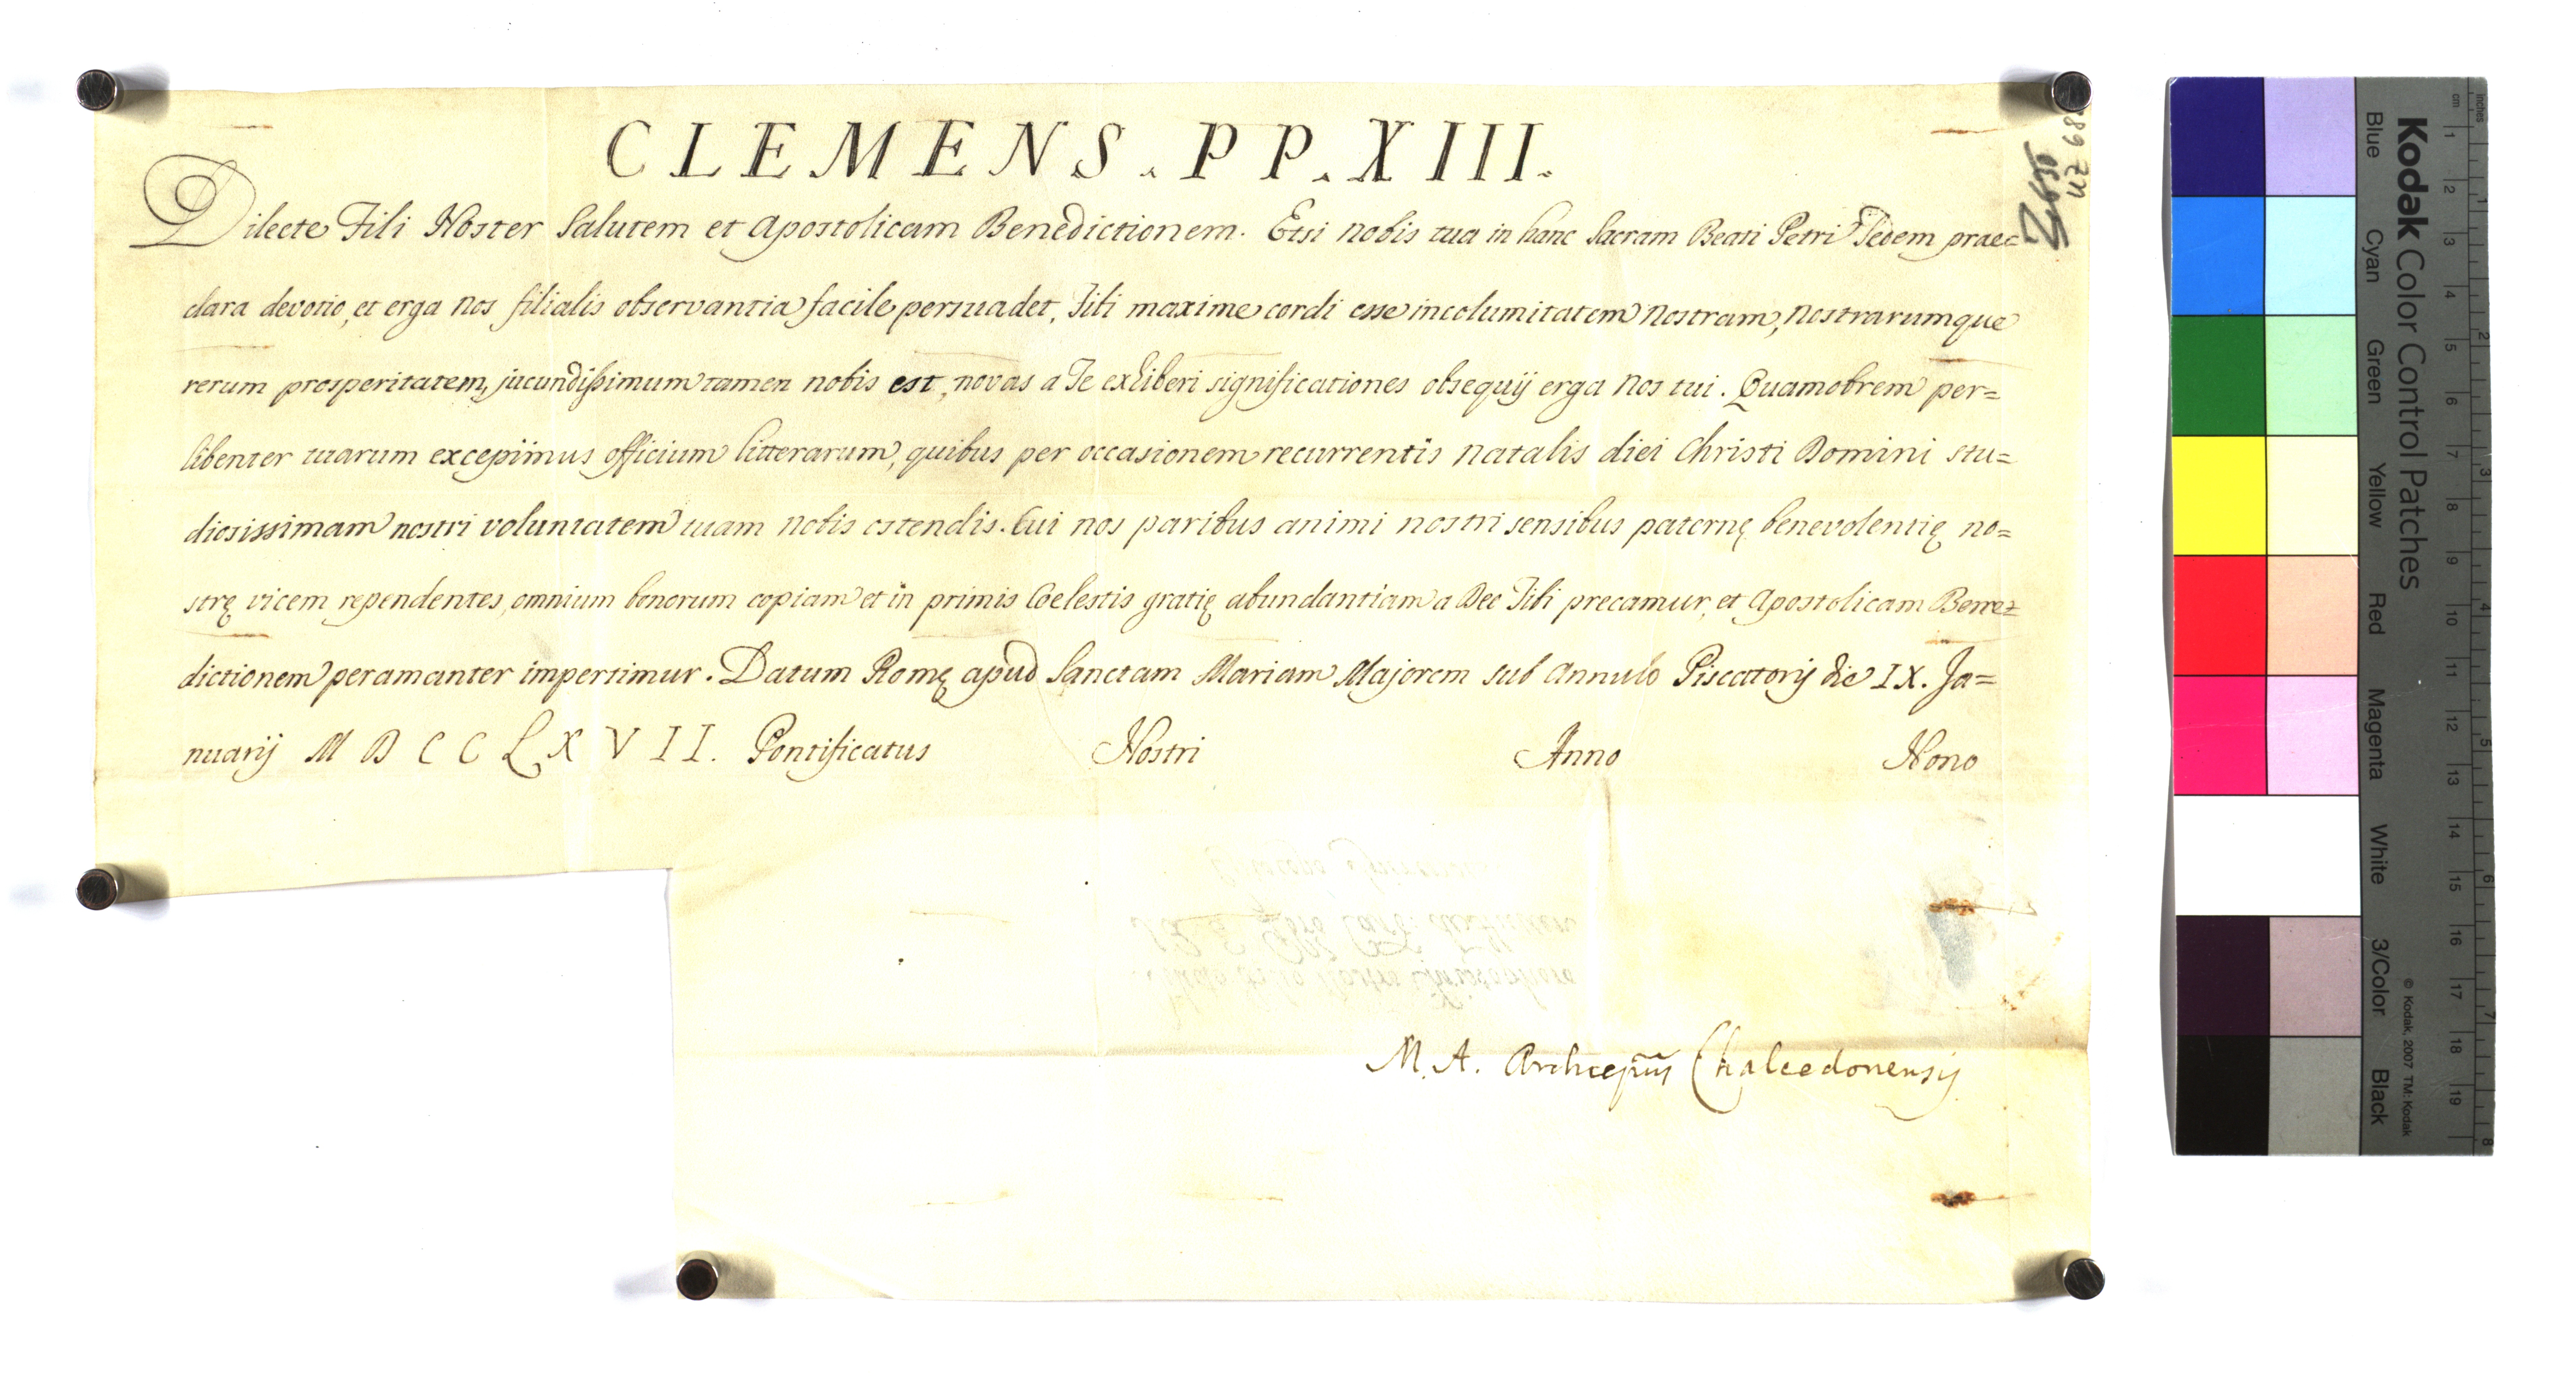 CLEMENS. PP. XIII.
Dilecte Fili Noster Salutem et Apostolicam Benedictionem. Etsi nobis tua in hanc Sacram Beati Petri Sedem praec
clara devotio, et erga nos filialis observantia facile persuadet, Tibi maxime cordi esse incolumitatem nostram, nostrarumque
rerum prosperitatem, jucundissimum tamen nobis est, novas a Te exhiberi significationes obsequij erga nos tui. Quamobrem per=
libenter tuarum excepimus officium litterarum, quibus per occasionem recurrentis natalis diei Christi Domini stu=
diosissimam nostri voluntatem tuam nobis ostendis. Cui nos paribus animi nostri sensibus paternę benevolentię no=
strę vicem rependentes, omnium bonorum copiam et in primis Coelestis gratię abundantiam a Deo Tibi precamur, et Apostolicam Bene=
dictionem peramanter impertimur. Datum Romę apud Sanctam Mariam Majorem sub Annulo Piscatorij die IX. Ja=
nuarij MDCCLXVII. Pontificatus Nostri Anno Nono
M. A. Archiepũs Chalcedonensis
Kodak Color Control Patches
Blue Cyan Green Yellow Red Magenta White 3/Color Black
© Kodak, 2007 TM: Kodak
cm 1 2 3 4 5 6 7 8 9 10 11 12 13 14 15 16 17 18 19
inches 1 2 3 4 5 6 7 8